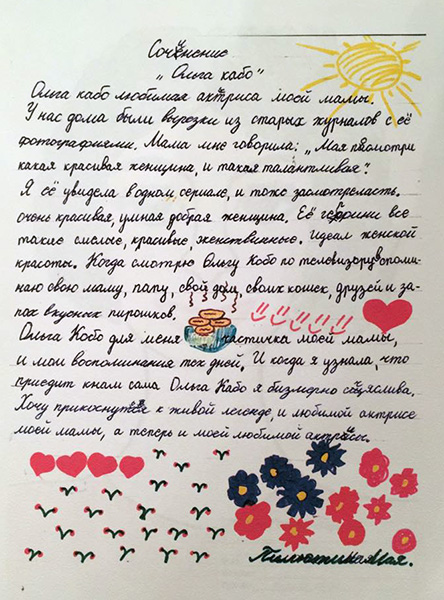 Сочинение
"Ольга кабо"
Ольга кабо любимая актриса моей мамы.
У нас дома были вырозки из старых журналов с её
фотографиями. Мама мне говорила: „Мая посмотри
какая красивая женщина, и такая талантливая".
Я её увидела в одном сериале, и тоже засмотрелась.
очень красивая, умная добрая женщина. Её героини все
такие смелые, красивые, женственные. Идеал женской
красоты. Когда смотрю Ольгу Кобо по телевизору вспоми-
наю свою маму, папу, свой дом, своих кошек, друзей и за-
пах вкусных пирошков.
Ольга Кобо для меня частичка моей мамы,
и мои воспоминания тех дней. И когда я узнала, что
приедит кнам сама Ольга Кабо я безмерно сщяслива.
Хочу прикоснутся к живой легенде, и любимой актрисе
моей мамы, а теперь и моей любимой актрисы.
Пилютина Мая.